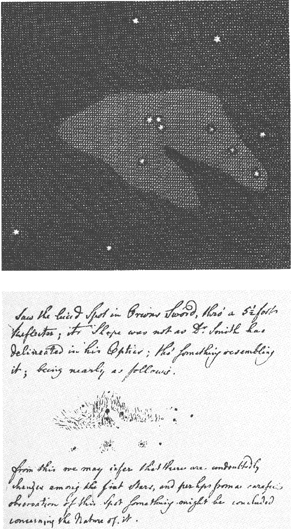 Saw the lucid Spot in Orions Sword, thro' a 5½ foot
Reflector; its Shape was not as Dr. Smith has
delineated in his Optics; tho' something resembling
it; being nearly as follows.
from this we may infer that there are undoubtedly
changes among the fixt Stars, and perhaps from a careful
observation of this Spot something might be concluded
concerning the Nature of it.